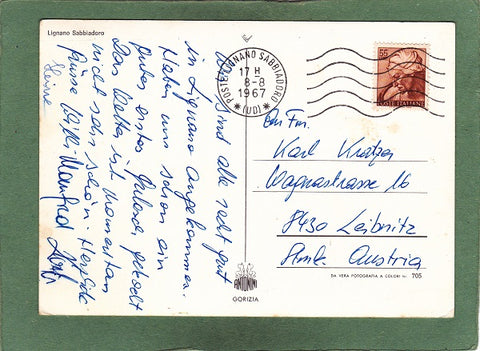 Lignano Sabbiadoro
Wir sind alle recht gut
in Lignano angekommen.
Haben uns schon ein
gutes erstes
Das Wetter ist momentan
nicht sehr schön. Herzliche
Grüsse Willi Manfred
POSTE LIGNANO SABBIADORO
17 H
8-8
1967
(UD)
55
POSTE ITALIANE
An Fam.
Karl
Wagnastrasse 16
8430 Leibnitz
Stmk. Austria
ANTONINI
GORIZIA
DA VERA FOTOGRAFIA A COLORI N. 705